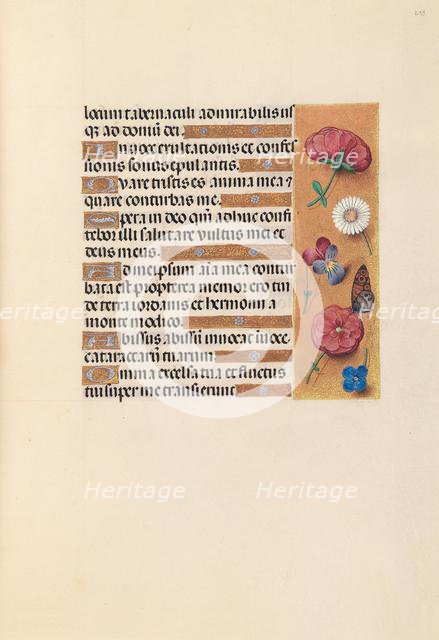 locum tabernaculi admirabilis us
qȝ ad domū dei.
In voce exultationis et confes
sionis sonus epulantis.
Quare tristis es anima mea ⁊
quare conturbas me.
Spera in deo qm̄ adhuc confi
tebor illi salutare vultus mei et
deus meus.
Ad meipsum aīa mea contur
bata est propterea memor ero tui
de terra iordanis et hermonij a
monte modico.
Abissus abissū invocat in voce
cataractarū tuarum.
Omnia excelsa tua et fluctus
tui super me transierunt
Heritage
Heritage
Heritage
Heritage
Heritage
Heritage